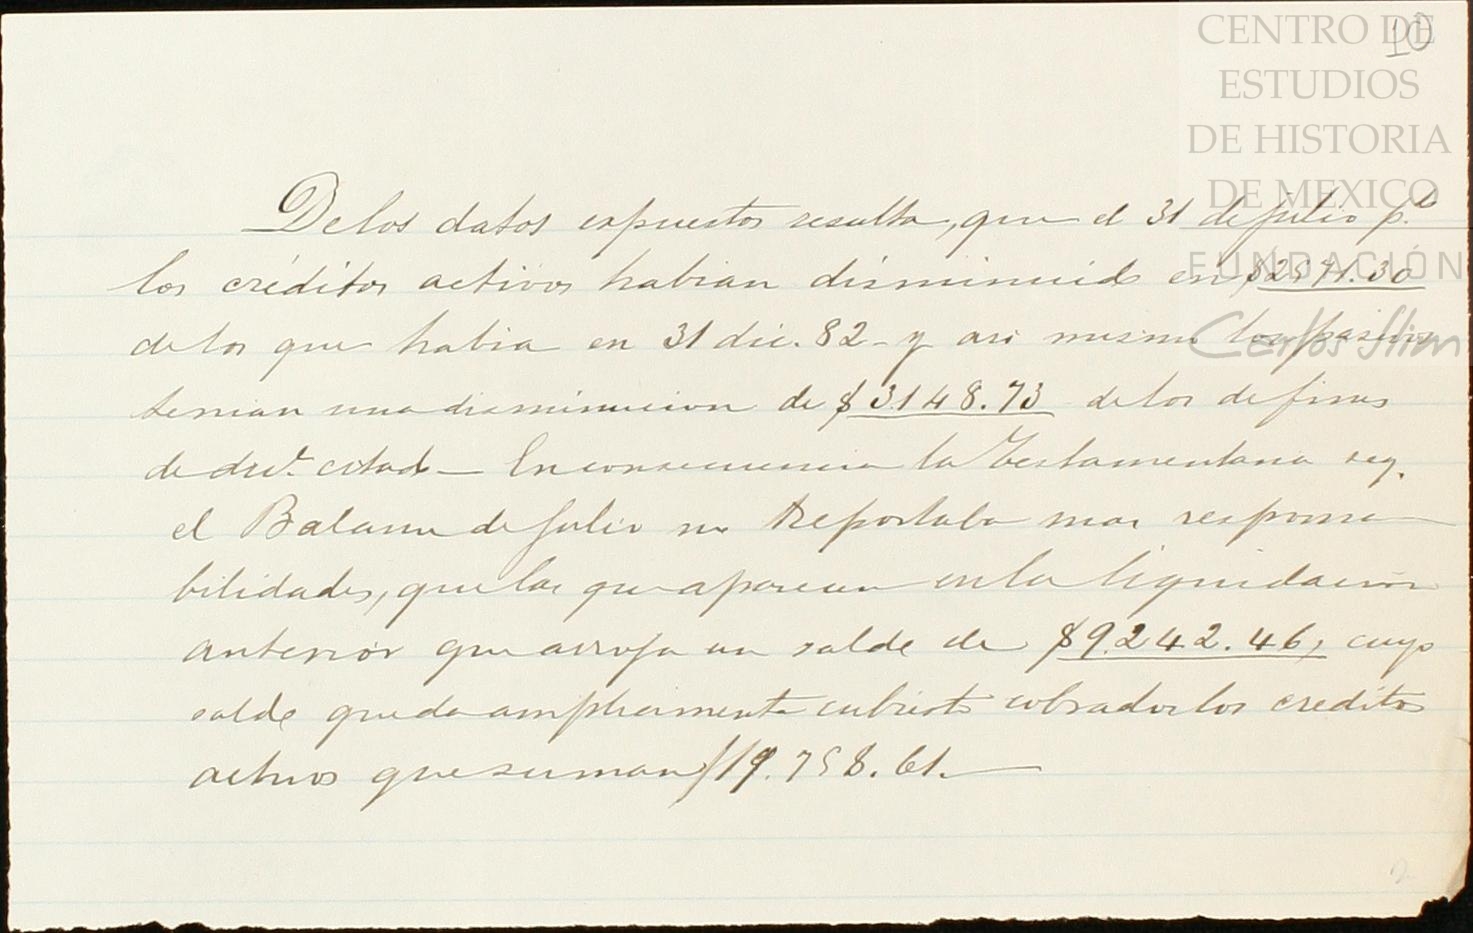 10
CENTRO DE
ESTUDIOS
DE HISTORIA
DE MEXICO
FUNDACIÓN
Carlos Slim
De los datos expuestos resulta, que el 31 de julio p.do
los créditos activos habian disminuido en
de los que habia en 31 dic. 82 - y asi mismo los pasivos
tenian una disminucion de $3.148.73 de los de fines
de dho. estado — En consecuencia la Testamentaria seg.
el Balance de Julio no reportaba mas responsa-
bilidades, que las que aparecen en la liquidacion
anterior que arroja un saldo de $9.242.46, cuyo
saldo queda ampliamente cubierto cobrados los creditos
activos que suman $19.758.61.—